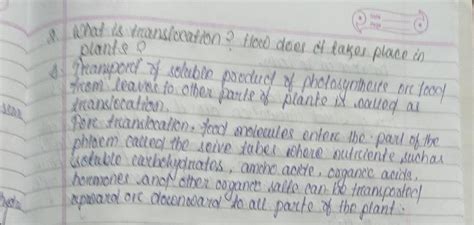 2. What is translocation? How does it takes place in
plants?
A. Transport of soluble product of photosynthesis or food
from leaves to other parts of plants is called as
translocation.
For translocation, food molecules enters the part of the
phloem called the seive tubes where nutrients such as
soluble carbohydrates, amino acids, organic acids,
hormones and other organic salts can be transported
upward or downward to all parts of the plant.